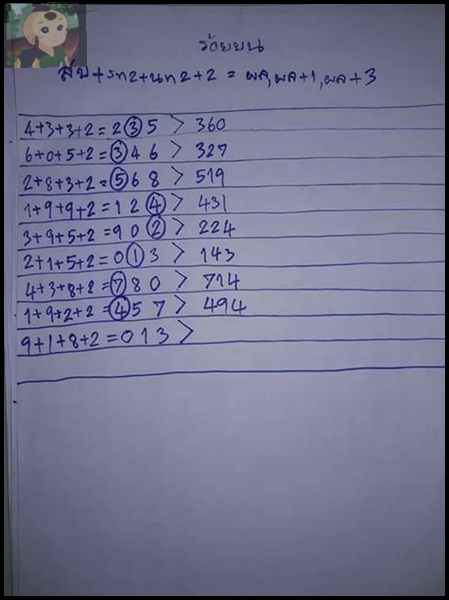 ร้อยบน
สบ+รท2+นท2+2 = ผล,ผล+1,ผล+3
4+3+3+2=2 3 5 > 360
6+0+5+2=3 4 6 > 327
2+8+3+2=5 6 8 > 519
1+9+9+2=1 2 4 > 431
3+9+5+2=9 0 2 > 224
2+1+5+2=0 1 3 > 143
4+3+8+2=7 8 0 > 714
1+9+2+2=4 5 7 > 494
9+1+8+2=0 1 3 >